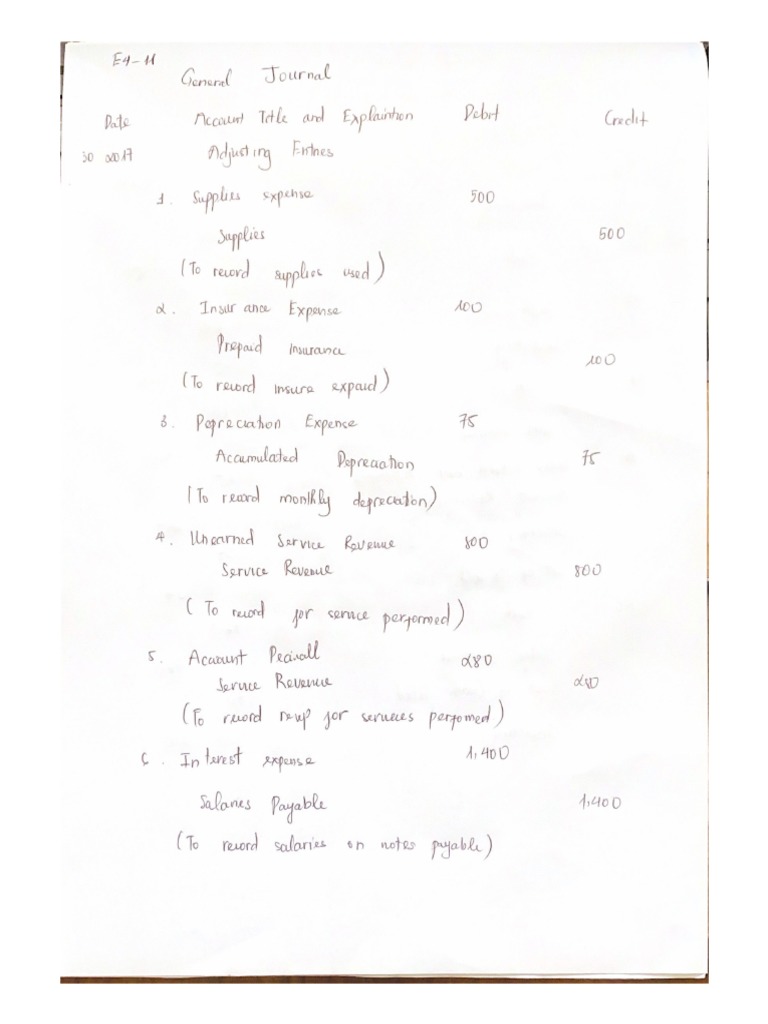 E4-11
General Journal
Date Account Title and Explaintion Debit Credit
30 2017 Adjusting Entries
1. Supplies expense 500
Supplies 500
(To record supplies used)
2. Insurance Expense 100
Prepaid insurance
100
(To record insure expaid)
3. Depreciation Expense 75
Accumulated Depreciation 75
(To record monthly depreciation)
4. Unearned Service Revenue 800
Service Revenue 800
(To record for service performed)
5. Account 280
Service Revenue 280
(To record for services perfomed)
6. Interest expense 1,400
Salaries Payable 1,400
(To record salaries on notes payable)